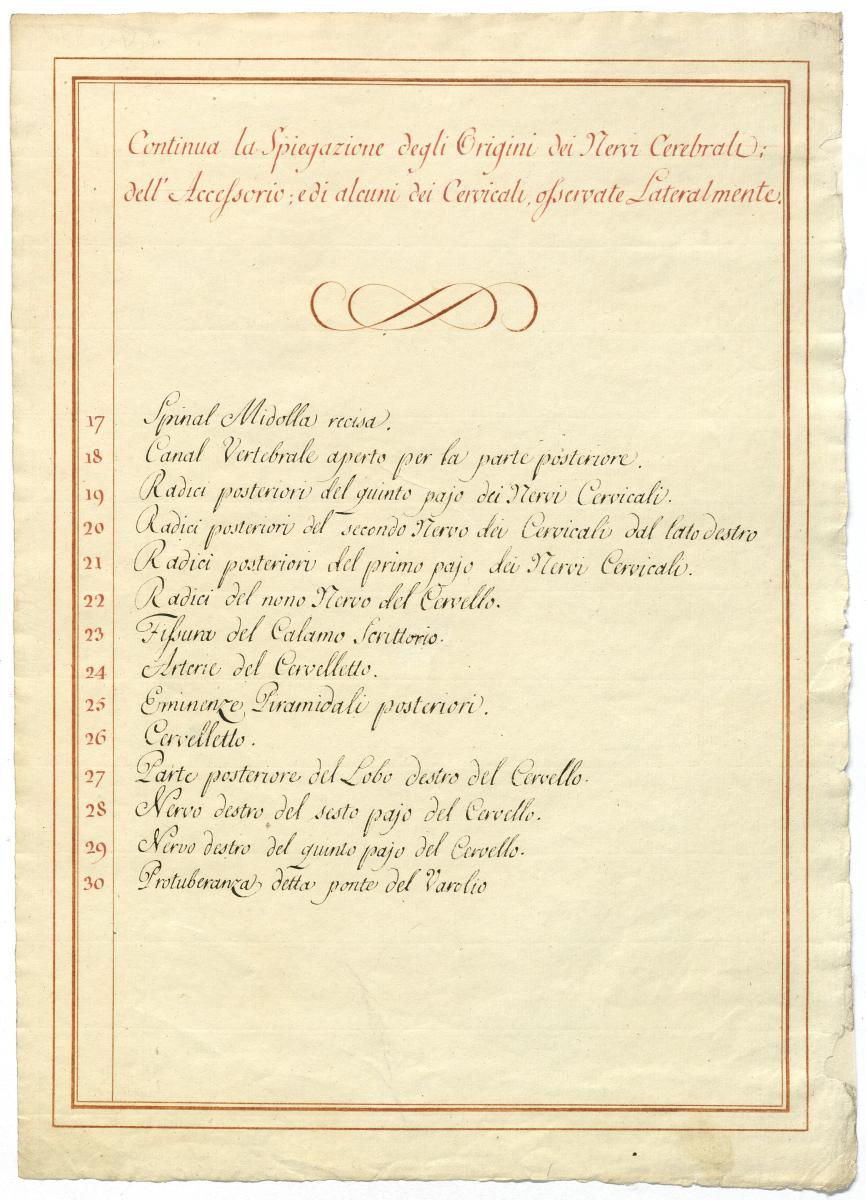 Continua la Spiegazione degli Origini dei Nervi Cerebrali;
dell'Accessorio; e di alcuni dei Cervicali, osservate Lateralmente.
17 Spinal Midolla recisa.
18 Canal Vertebrale aperto per la parte posteriore.
19 Radici posteriori del quinto pajo dei Nervi Cervicali.
20 Radici posteriori del secondo Nervo dei Cervicali dal lato destro
21 Radici posteriori del primo pajo dei Nervi Cervicali.
22 Radici del nono Nervo del Cervello.
23 Fissura del Calamo Scrittorio.
24 Arterie del Cervelletto.
25 Eminenze Piramidali posteriori.
26 Cervelletto.
27 Parte posteriore del Lobo destro del Cervello.
28 Nervo destro del sesto pajo del Cervello.
29 Nervo destro del quinto pajo del Cervello.
30 Protuberanza detta ponte del Varolio